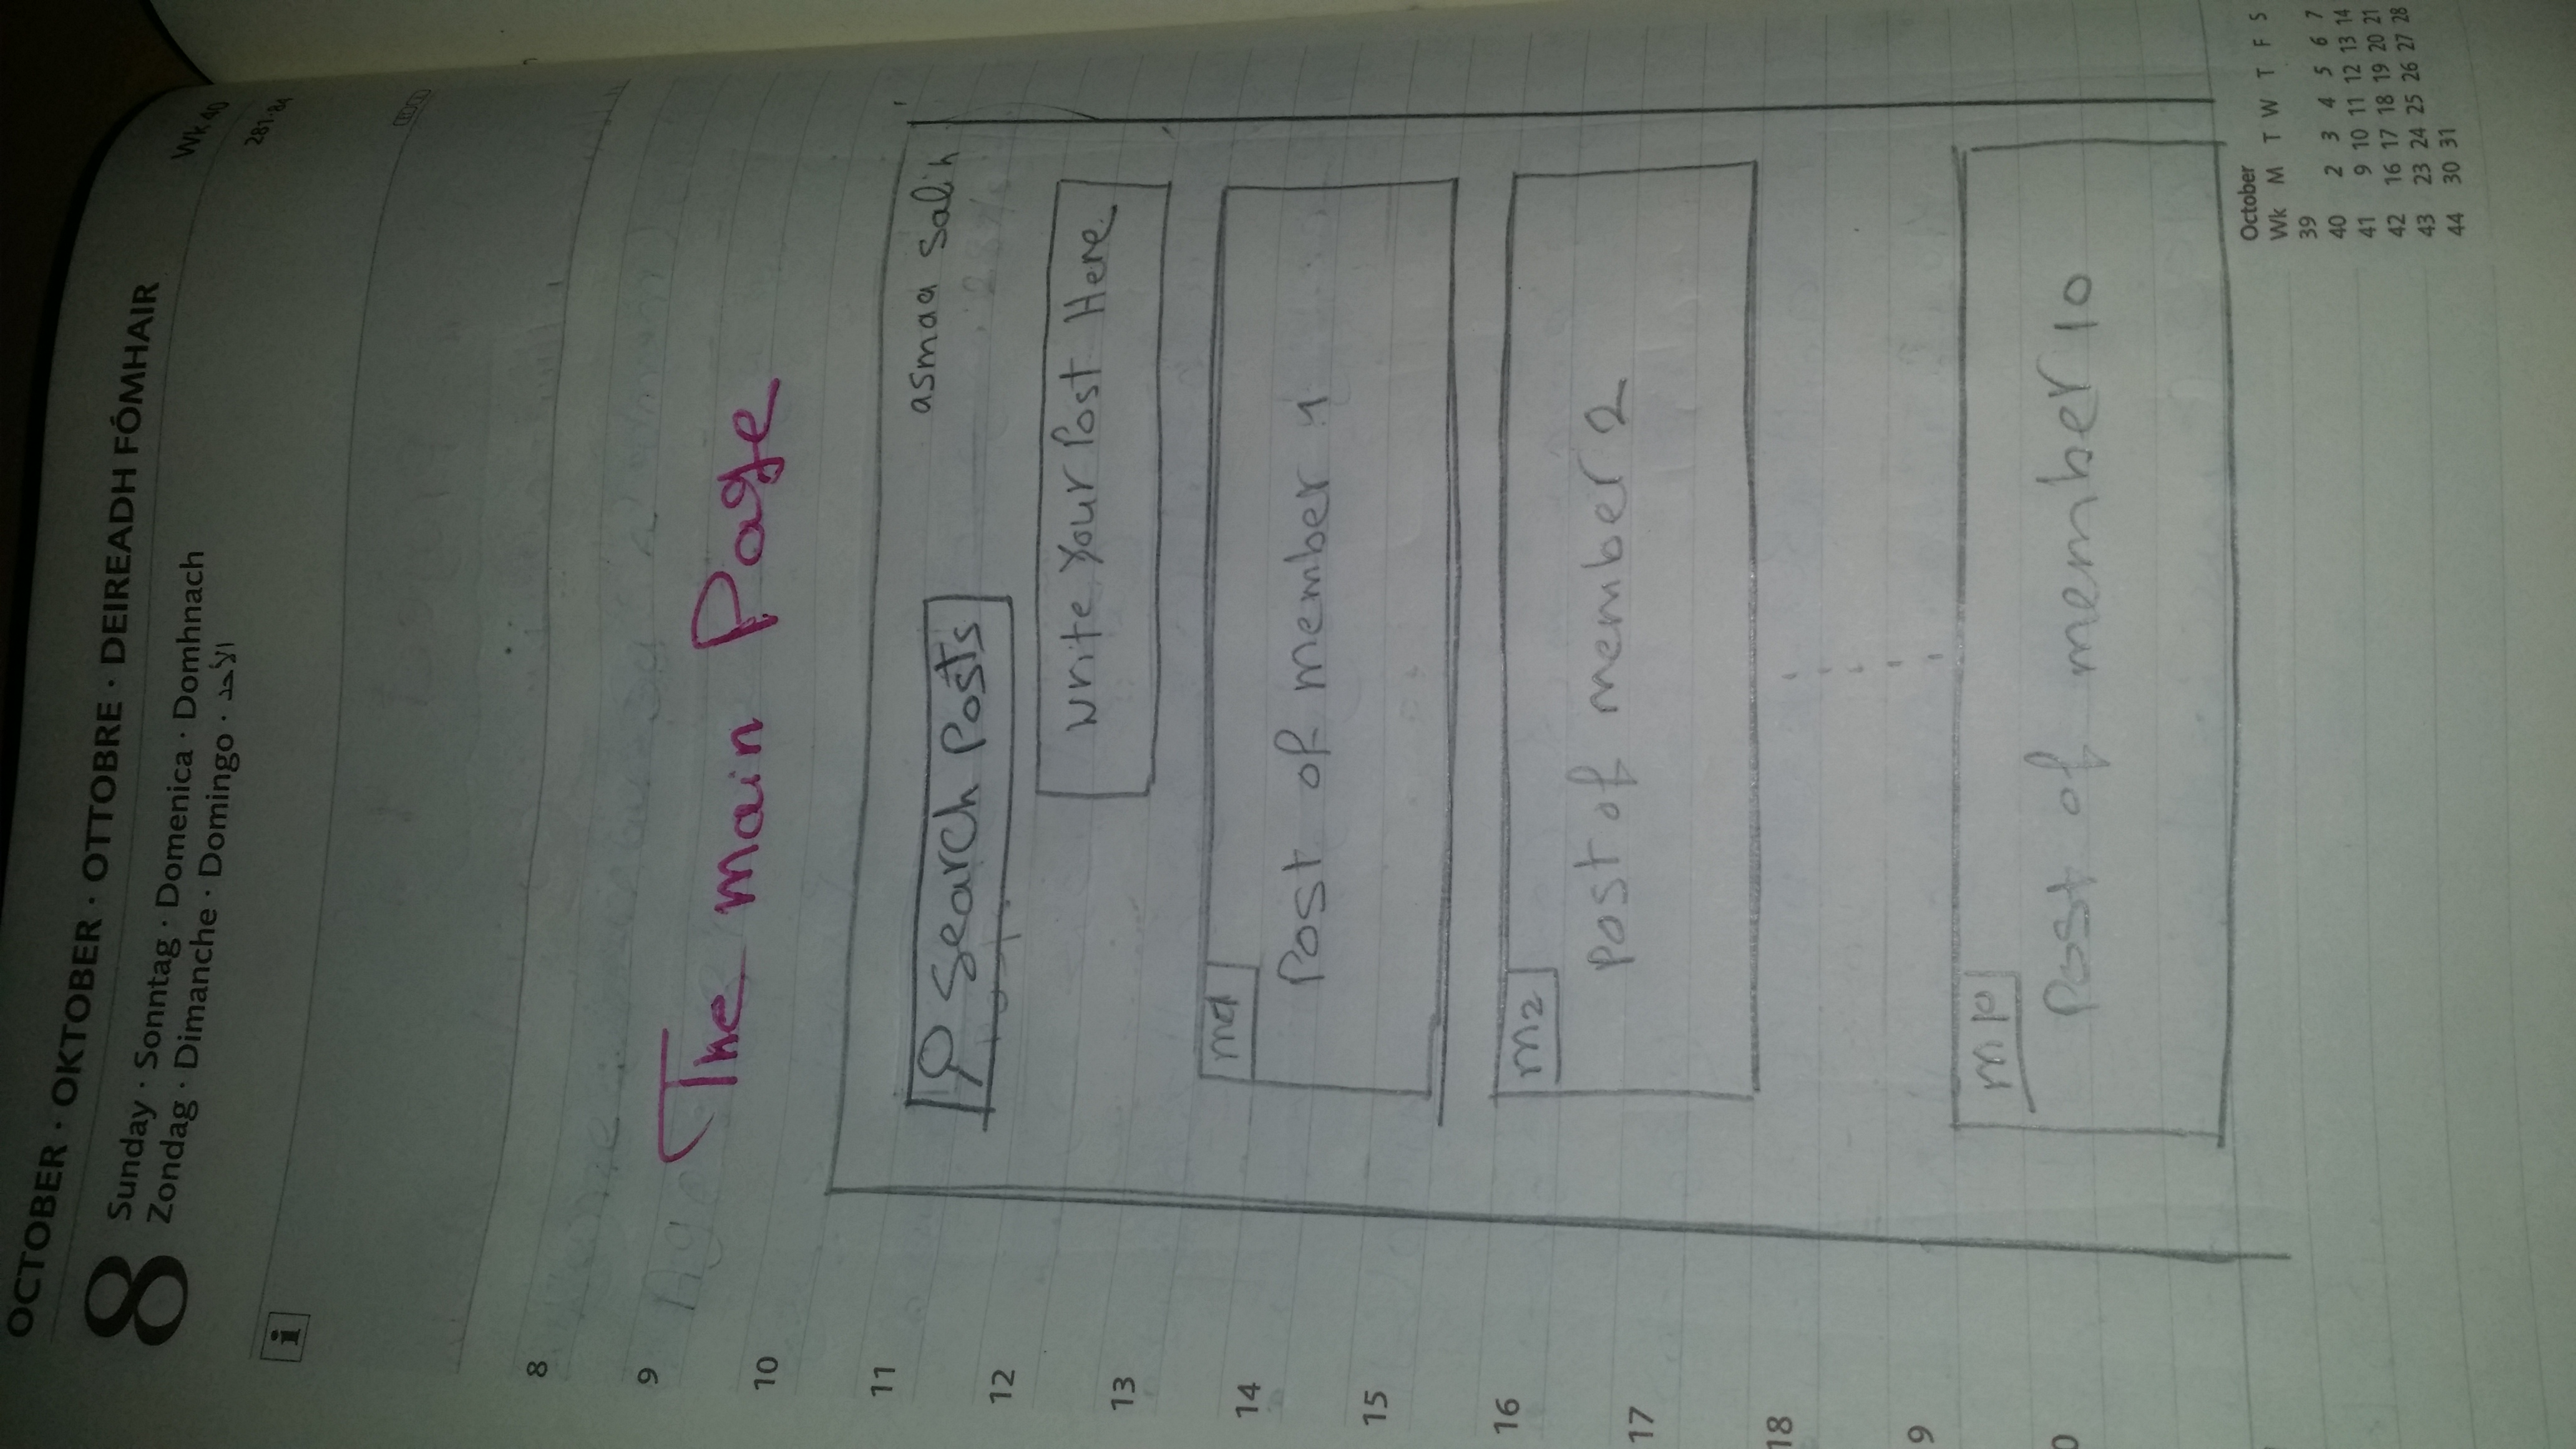 OCTOBER · OKTOBER · OTTOBRE · DEIREADH FÓMHAIR
8
Sunday · Sonntag · Domenica · Domhnach
Zondag · Dimanche · Domingo · الأحد
Wk 40
281-84
i
8
9
The main Page
10
11
asmaa salih
Search Posts
12
write Your Post Here
13
m1
14
Post of member 1
15
16
m2
post of member 2
17
18
9
m10
0
Post of member 10
October
Wk M T W T F S
39
40 2 3 4 5 6 7
41 9 10 11 12 13 14
42 16 17 18 19 20 21
43 23 24 25 26 27 28
44 30 31